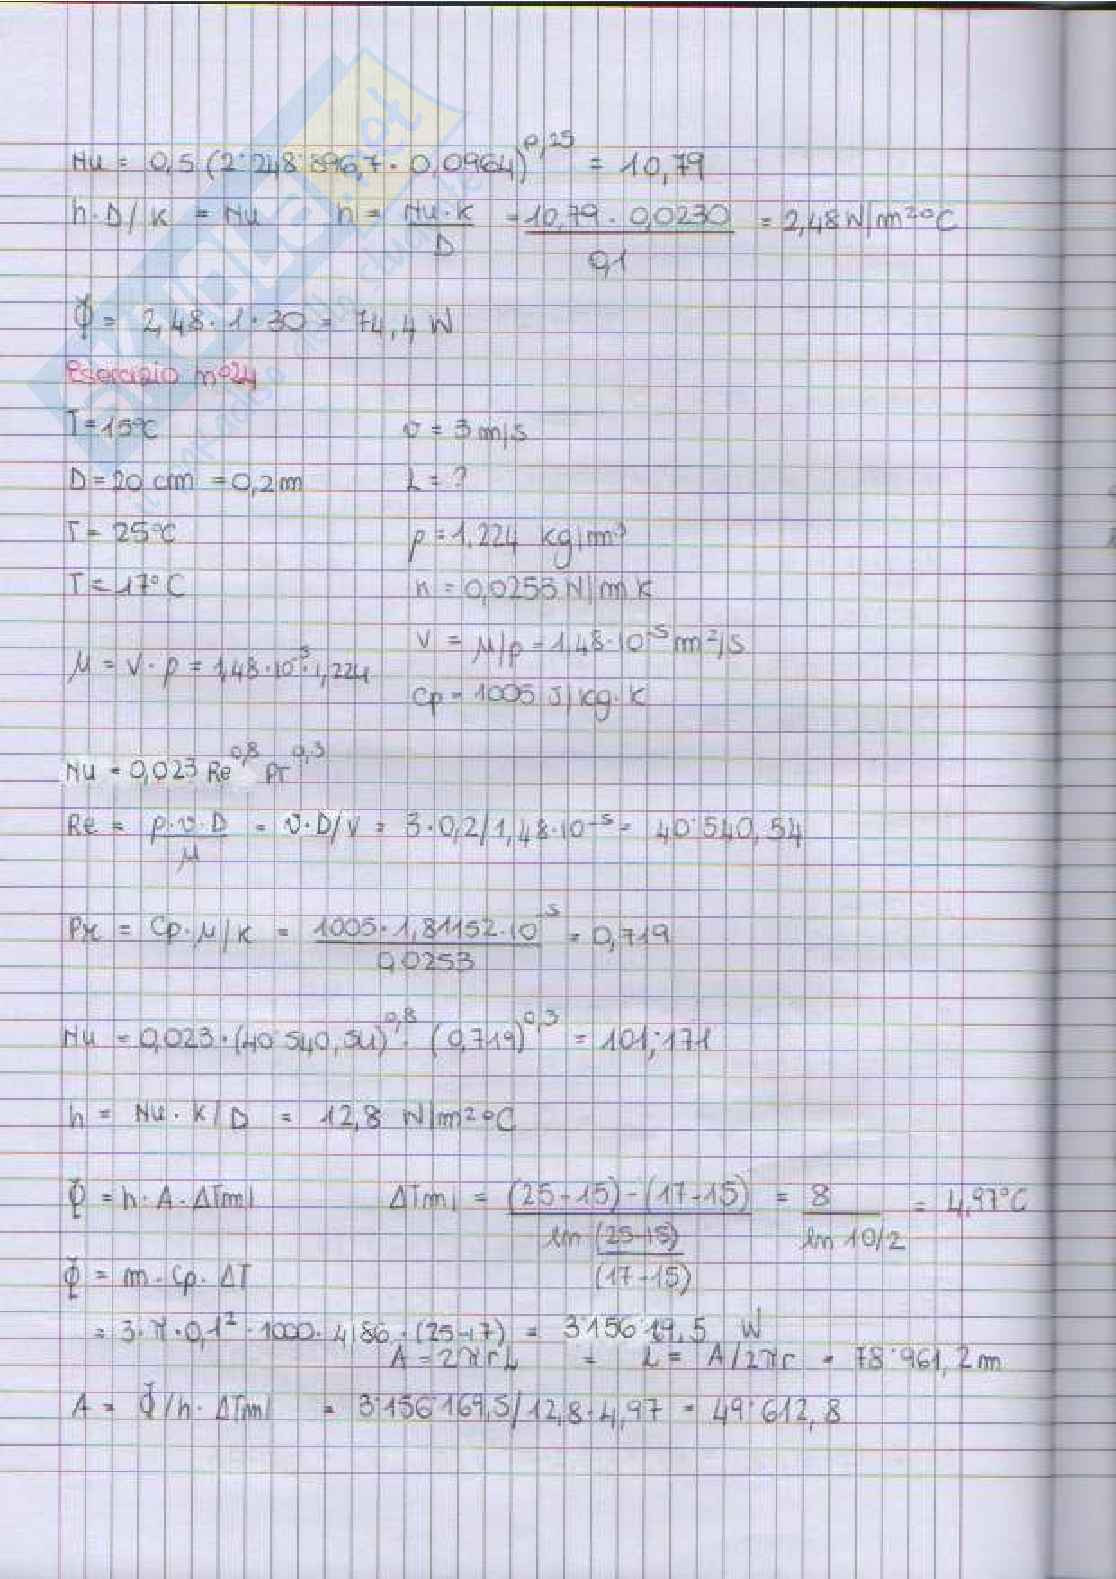 Nu = 0,5 (2˙248˙896,7 · 0,0964)^0,25 = 10,79
h·D/k = Nu h = Nu·k/D = 10,79 · 0,0230/0,1 = 2,48 W/m²°C
Φ = 2,48 · 1 · 30 = 74,4 W
Esercizio n°24
T = 15°C v = 3 m/s
D = 20 cm = 0,2 m L = ?
T = 25°C ρ = 1,224 kg/m³
T = 17°C k = 0,0253 W/m K
ν = μ/ρ = 1,48·10^-5 m²/s
μ = ν·ρ = 1,48·10^-5·1,224
Cp = 1005 J/kg·K
Nu = 0,023 Re^0,8 Pr^0,3
Re = ρ·v·D/μ = v·D/ν = 3·0,2/1,48·10^-5 = 40˙540,54
Pr = Cp·μ/k = 1005·1,81152·10^-5/0,0253 = 0,719
Nu = 0,023·(40˙540,54)^0,8 · (0,719)^0,3 = 101,171
h = Nu·k/D = 12,8 W/m²°C
Φ = h·A·ΔTml ΔTml = (25-15)-(17-15)/ln (25-15)/(17-15) = 8/ln 10/2 = 4,97°C
Φ = m·Cp·ΔT
= 3·π·0,1²·1000·4186·(25-17) = 3156169,5 W
A = 2πrL = L = A/2πr = 78˙961,2 m
A = Φ/h·ΔTml = 3˙156˙169,5/12,8·4,97 = 49˙612,8